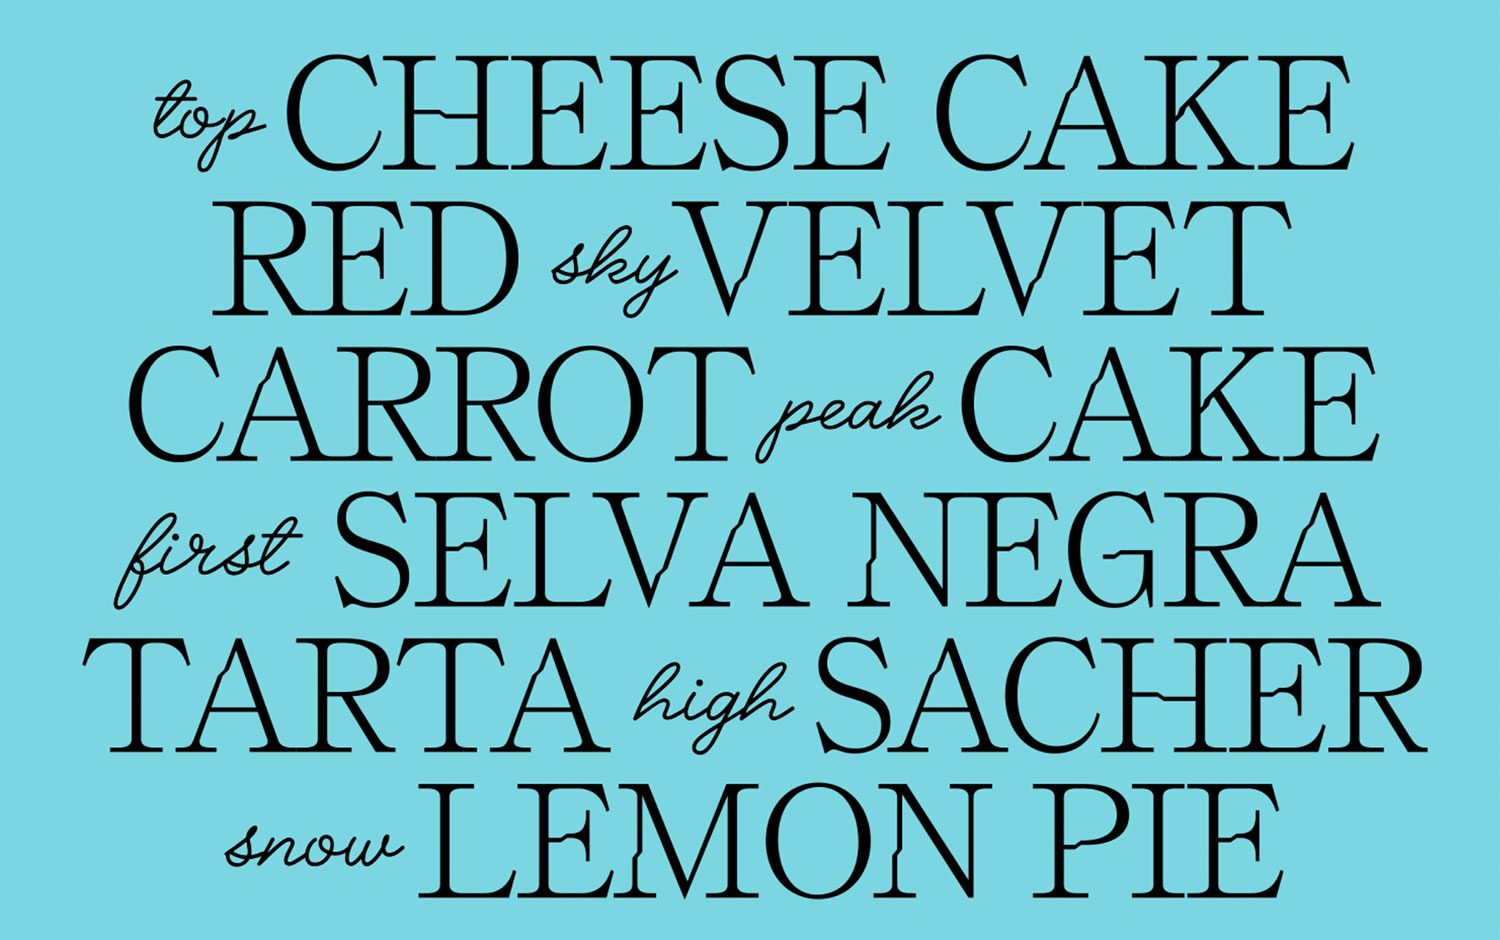 top CHEESE CAKE
RED sky VELVET
CARROT peak CAKE
first SELVA NEGRA
TARTA high SACHER
snow LEMON PIE